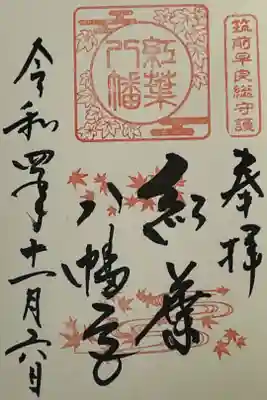 筑前早良総守護
奉拝
紅葉八幡
紅葉
八幡宮
令和四年十一月六日